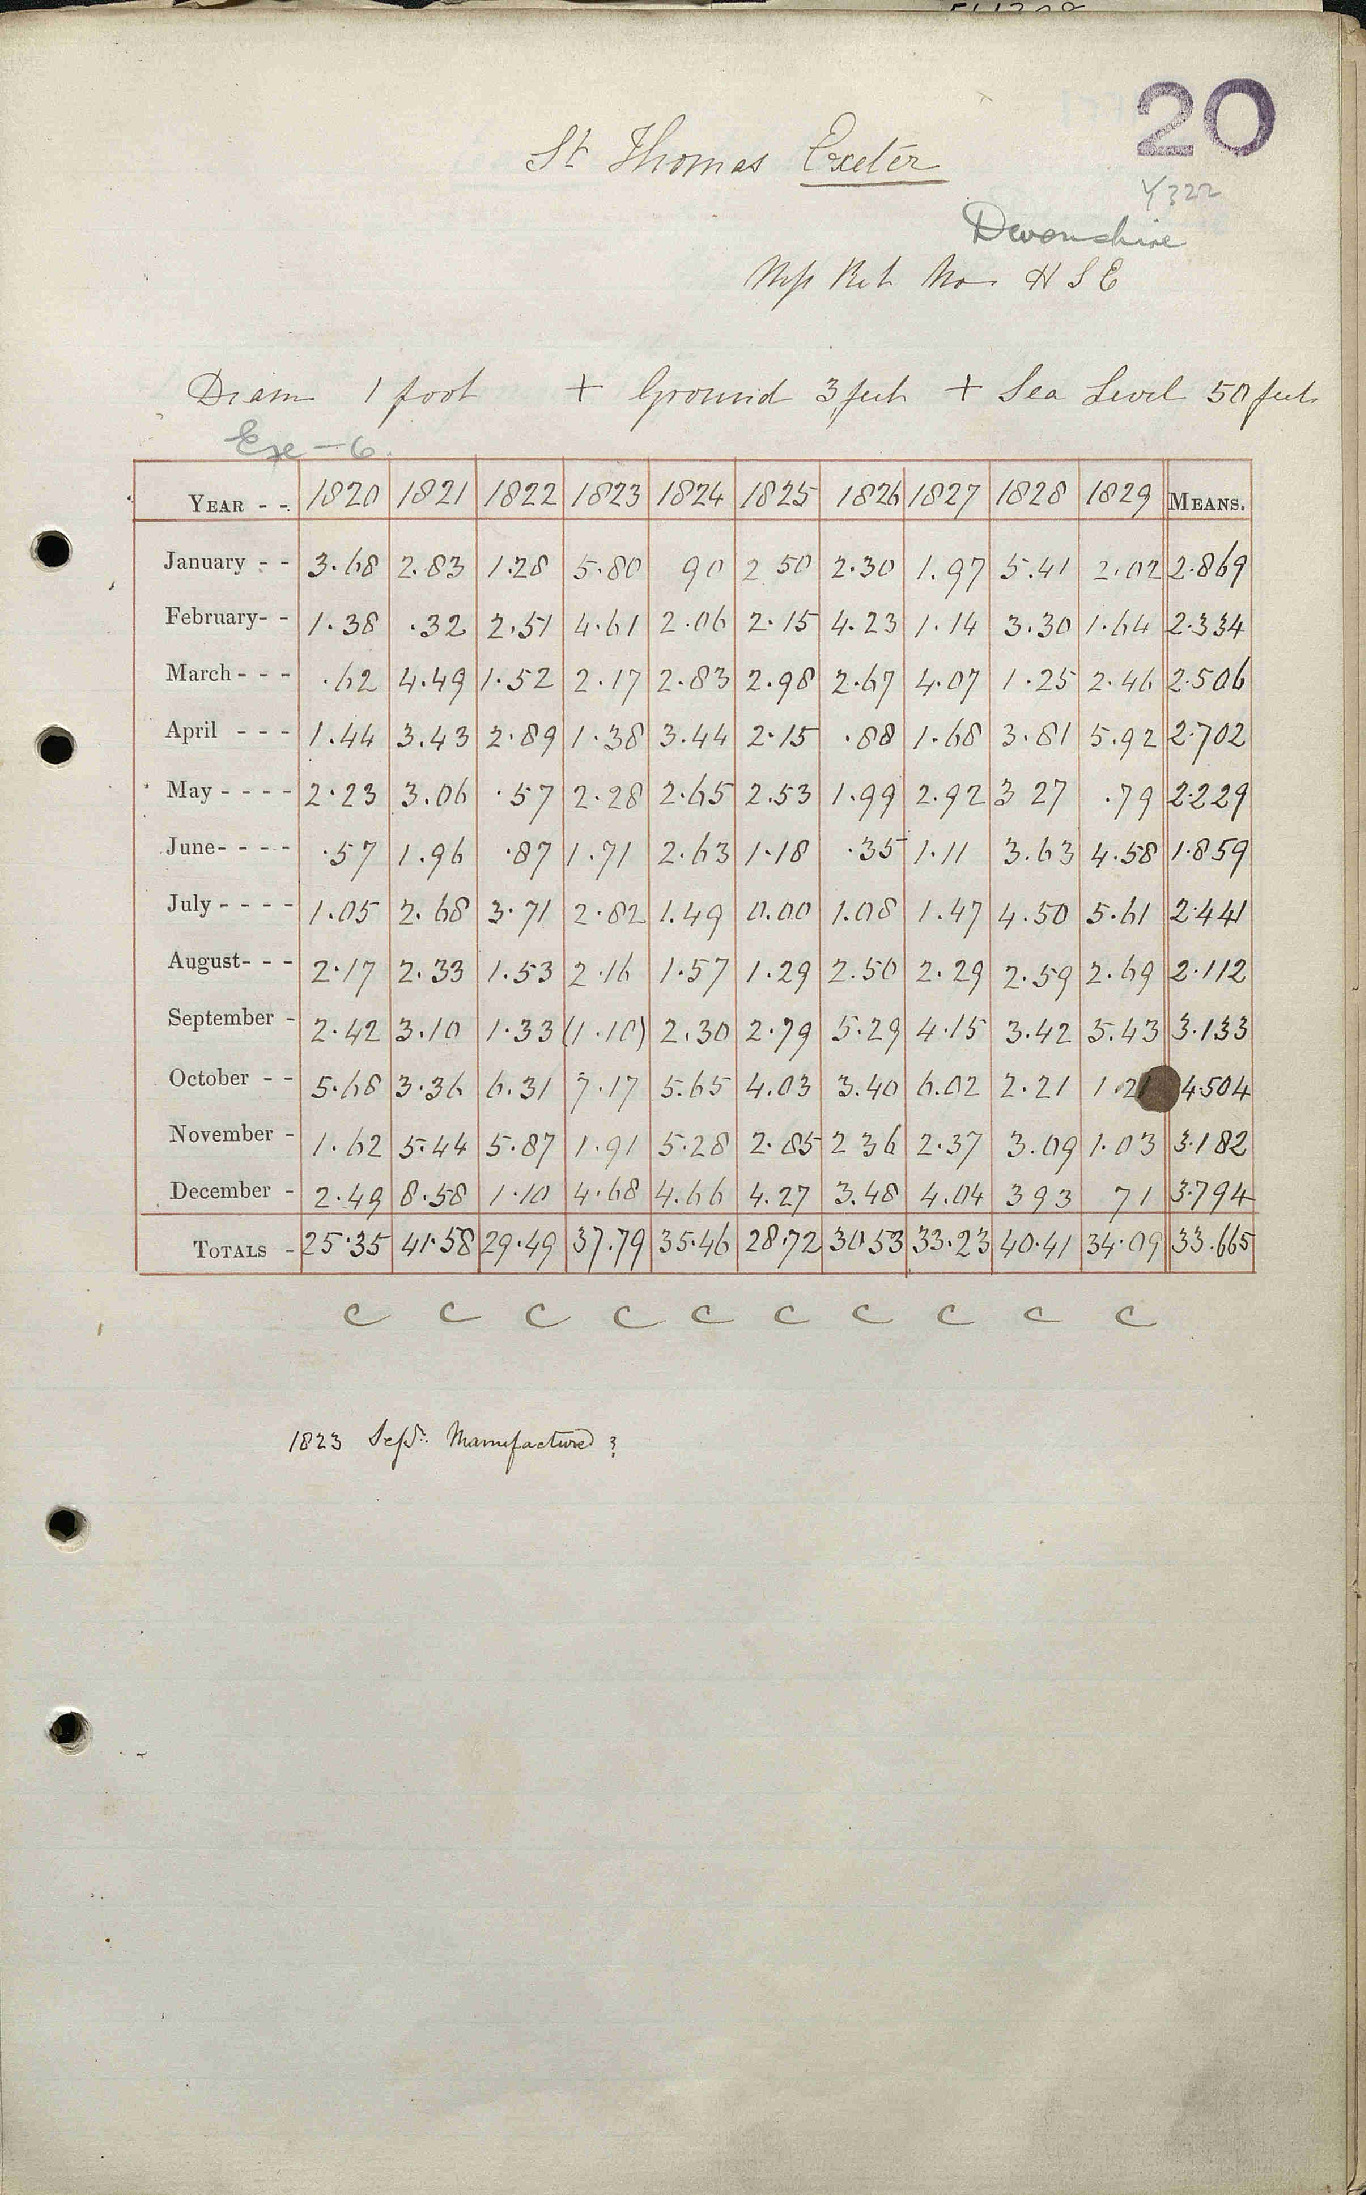 20
St Thomas Exeter
Y322
Devonshire
H S E
Diam 1 foot + Ground 3 feet + Sea Level 50 feet
Exe - 6.
YEAR - -. 1820 1821 1822 1823 1824 1825 1826 1827 1828 1829 MEANS.
January - - 3.68 2.83 1.28 5.80 90 2 50 2.30 1.97 5.41 2.02 2.869
February- - 1.38 .32 2.51 4.61 2.06 2.15 4.23 1.14 3.30 1.64 2.334
March - - - .62 4.49 1.52 2.17 2.83 2.98 2.67 4.07 1.25 2.46 2.506
April - - - 1.44 3.43 2.89 1.38 3.44 2.15 .88 1.68 3.81 5.92 2.702
May - - - - 2.23 3.06 .57 2.28 2.65 2.53 1.99 2.92 3 27 .79 2.229
June- - - - .57 1.96 .87 1.71 2.63 1.18 .35 1.11 3.63 4.58 1.859
July - - - - 1.05 2.68 3.71 2.82 1.49 0.00 1.08 1.47 4.50 5.61 2.441
August- - - 2.17 2.33 1.53 2.16 1.57 1.29 2.50 2.29 2.59 2.69 2.112
September - 2.42 3.10 1.33 (1.10) 2.30 2.79 5.29 4.15 3.42 5.43 3.133
October - - 5.68 3.36 6.31 7.17 5.65 4.03 3.40 6.02 2.21 1.21 4.504
November - 1.62 5.44 5.87 1.91 5.28 2.85 2 36 2.37 3.09 1.03 3.182
December - 2.49 8.58 1.10 4.68 4.66 4.27 3.48 4.04 3 93 71 3.794
TOTALS - 25.35 41.58 29.49 37.79 35.46 28.72 30.53 33.23 40.41 34.09 33.665
C C C C C C C C C C
1823 Sepr. Manufactured ?